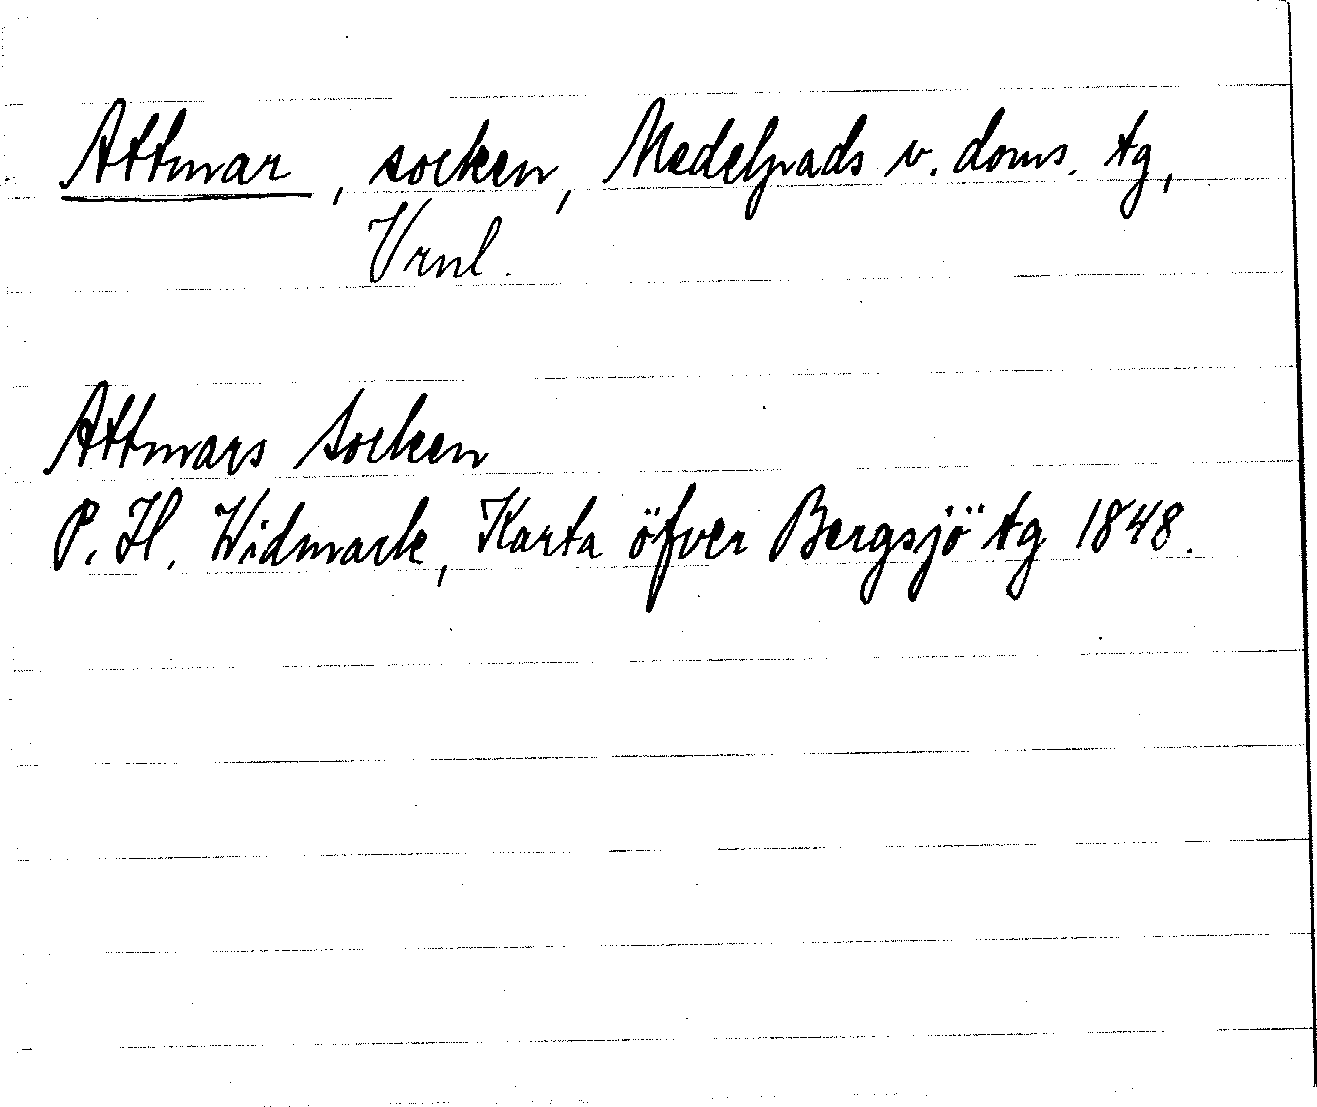 Attmar, socken, Medelpads v. doms. tg,
Vrnl.
Attmars Socken
P. H. Widmark, Karta öfver Bergsjö tg 1848.